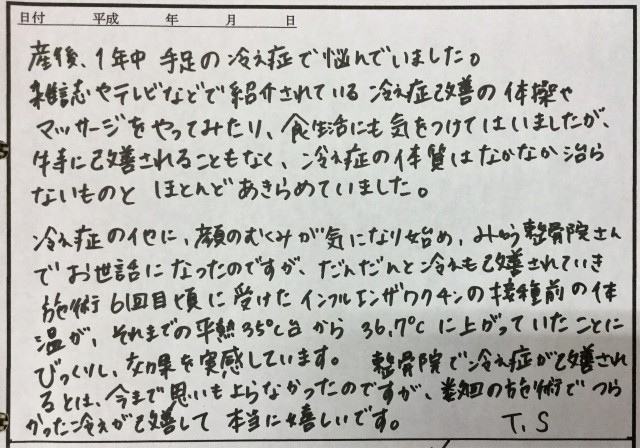 日付 平成 年 月 日
産後、1年中 手足の冷え症で悩んでいました。
雑誌やテレビなどで紹介されている 冷え症改善の体操や
マッサージをやってみたり、食生活にも気をつけてはいましたが、
特に改善されることもなく、冷え症の体質はなかなか治ら
ないものと ほとんどあきらめていました。
冷え症の他に、顔のむくみが気になり始め、みゆう整骨院さん
でお世話になったのですが、だんだんと冷えも改善されていき
施術6回目頃に受けたインフルエンザワクチンの接種前の体
温が、それまでの平熱35℃台から 36.7℃に上がっていたことに
びっくりし、効果を実感しています。 整骨院で冷え症が改善され
るとは、今まで思いもよらなかったのですが、数回の施術でつら
かった冷えが改善して 本当に嬉しいです。 T.S